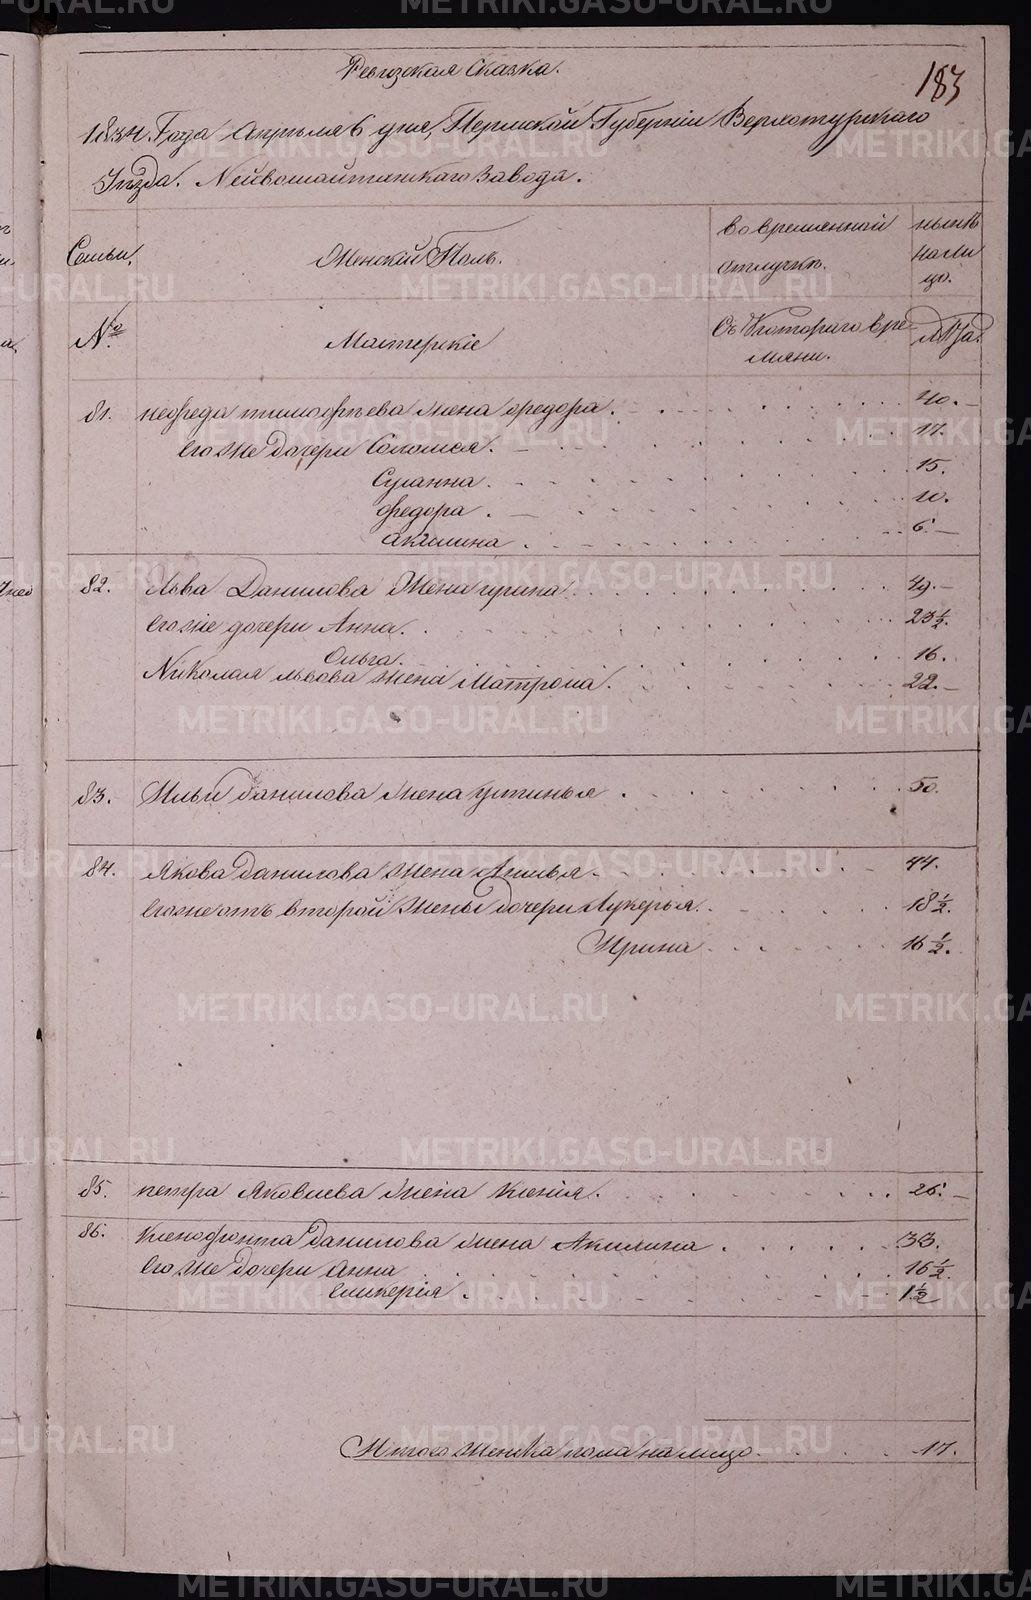 METRIKI.GASO-URAL.RU
Ревизская Сказка.
183
1834 Года Апреля 6 дня, Пермской Губернiи Верхотурскаго
Уѣзда. Нейвошайтанскаго завода.
Семьи,
Женскiй Полъ.
во временной отлучкѣ.
нынѣ на лицо.
№
Мастерскiе
Съ Котораго времяни.
лѣта.
81. нефеда тимофѣева жена федора. 40.
Его же дочери Соломея. 17.
Сусанна. 15.
федора. 10.
акилина. 6.
82. Льва Данилова Жена ирина. 49.
Его же дочери Анна. 23 ½.
Ольга. 16.
Николая львова жена Матрона. 22.
83. Ильи данилова жена устинья. 50.
84. Якова данилова жена 44.
Его же отъ второй жены дочери Лукерья. 18 ½.
Ирина 16 ½.
85. петра Яковлева жена Ксенiя. 26.
86. Ксенофонта данилова жена Акилина. 33.
Его же дочери Анна 16 ½.
Гликерiя. 1 ½
Итого женска пола на лицо. 17.